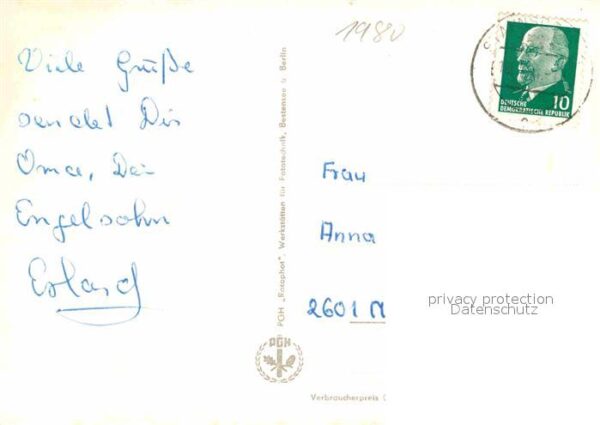 1980
10
DEUTSCHE
DEMOKRATISCHE REPUBLIK
Viele Grüße
sendet Dir
Oma, Dein
Engelsohn
Erhard
PGH „Rotophot", Werkstätten für Fototechnik, Bestensee b. Berlin
Frau
Anna
2601 M
privacy protection
Datenschutz
PGH
Verbraucherpreis